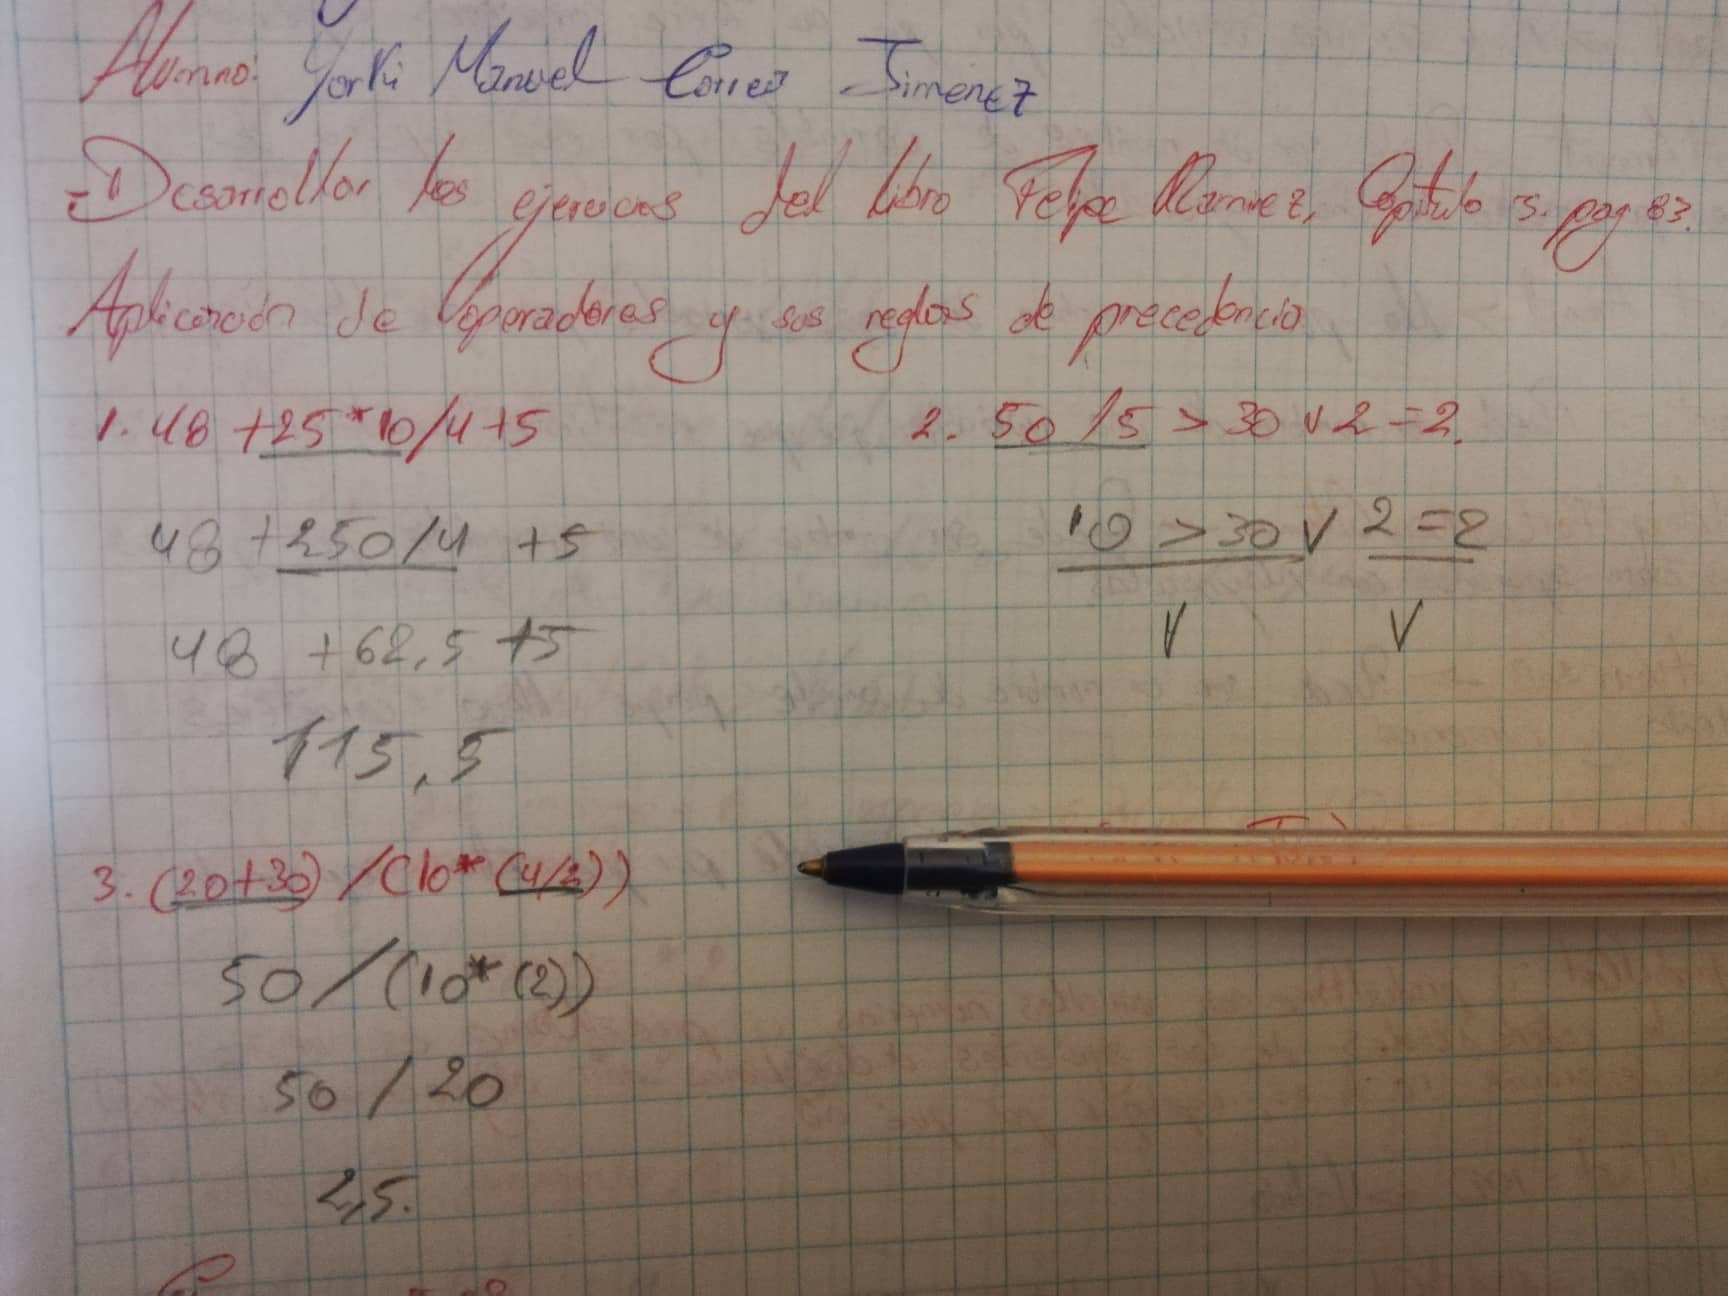 Alumno: Yorki Manuel Correa Jimenez
- Desarrollar los ejercicios del libro Felipe Ramirez, Capitulo 3. pag 83.
Aplicación de operadores y sus reglas de precedencia
1. 48 + 25 * 10 / 4 + 5
48 + 250 / 4 + 5
48 + 62,5 + 5
115,5
2. 50 / 5 > 30 v 2 = 2.
10 > 30 V 2 = 2
V V
3. (20+30) / (10 * (4/2))
50 / (10 * (2))
50 / 20
2,5.